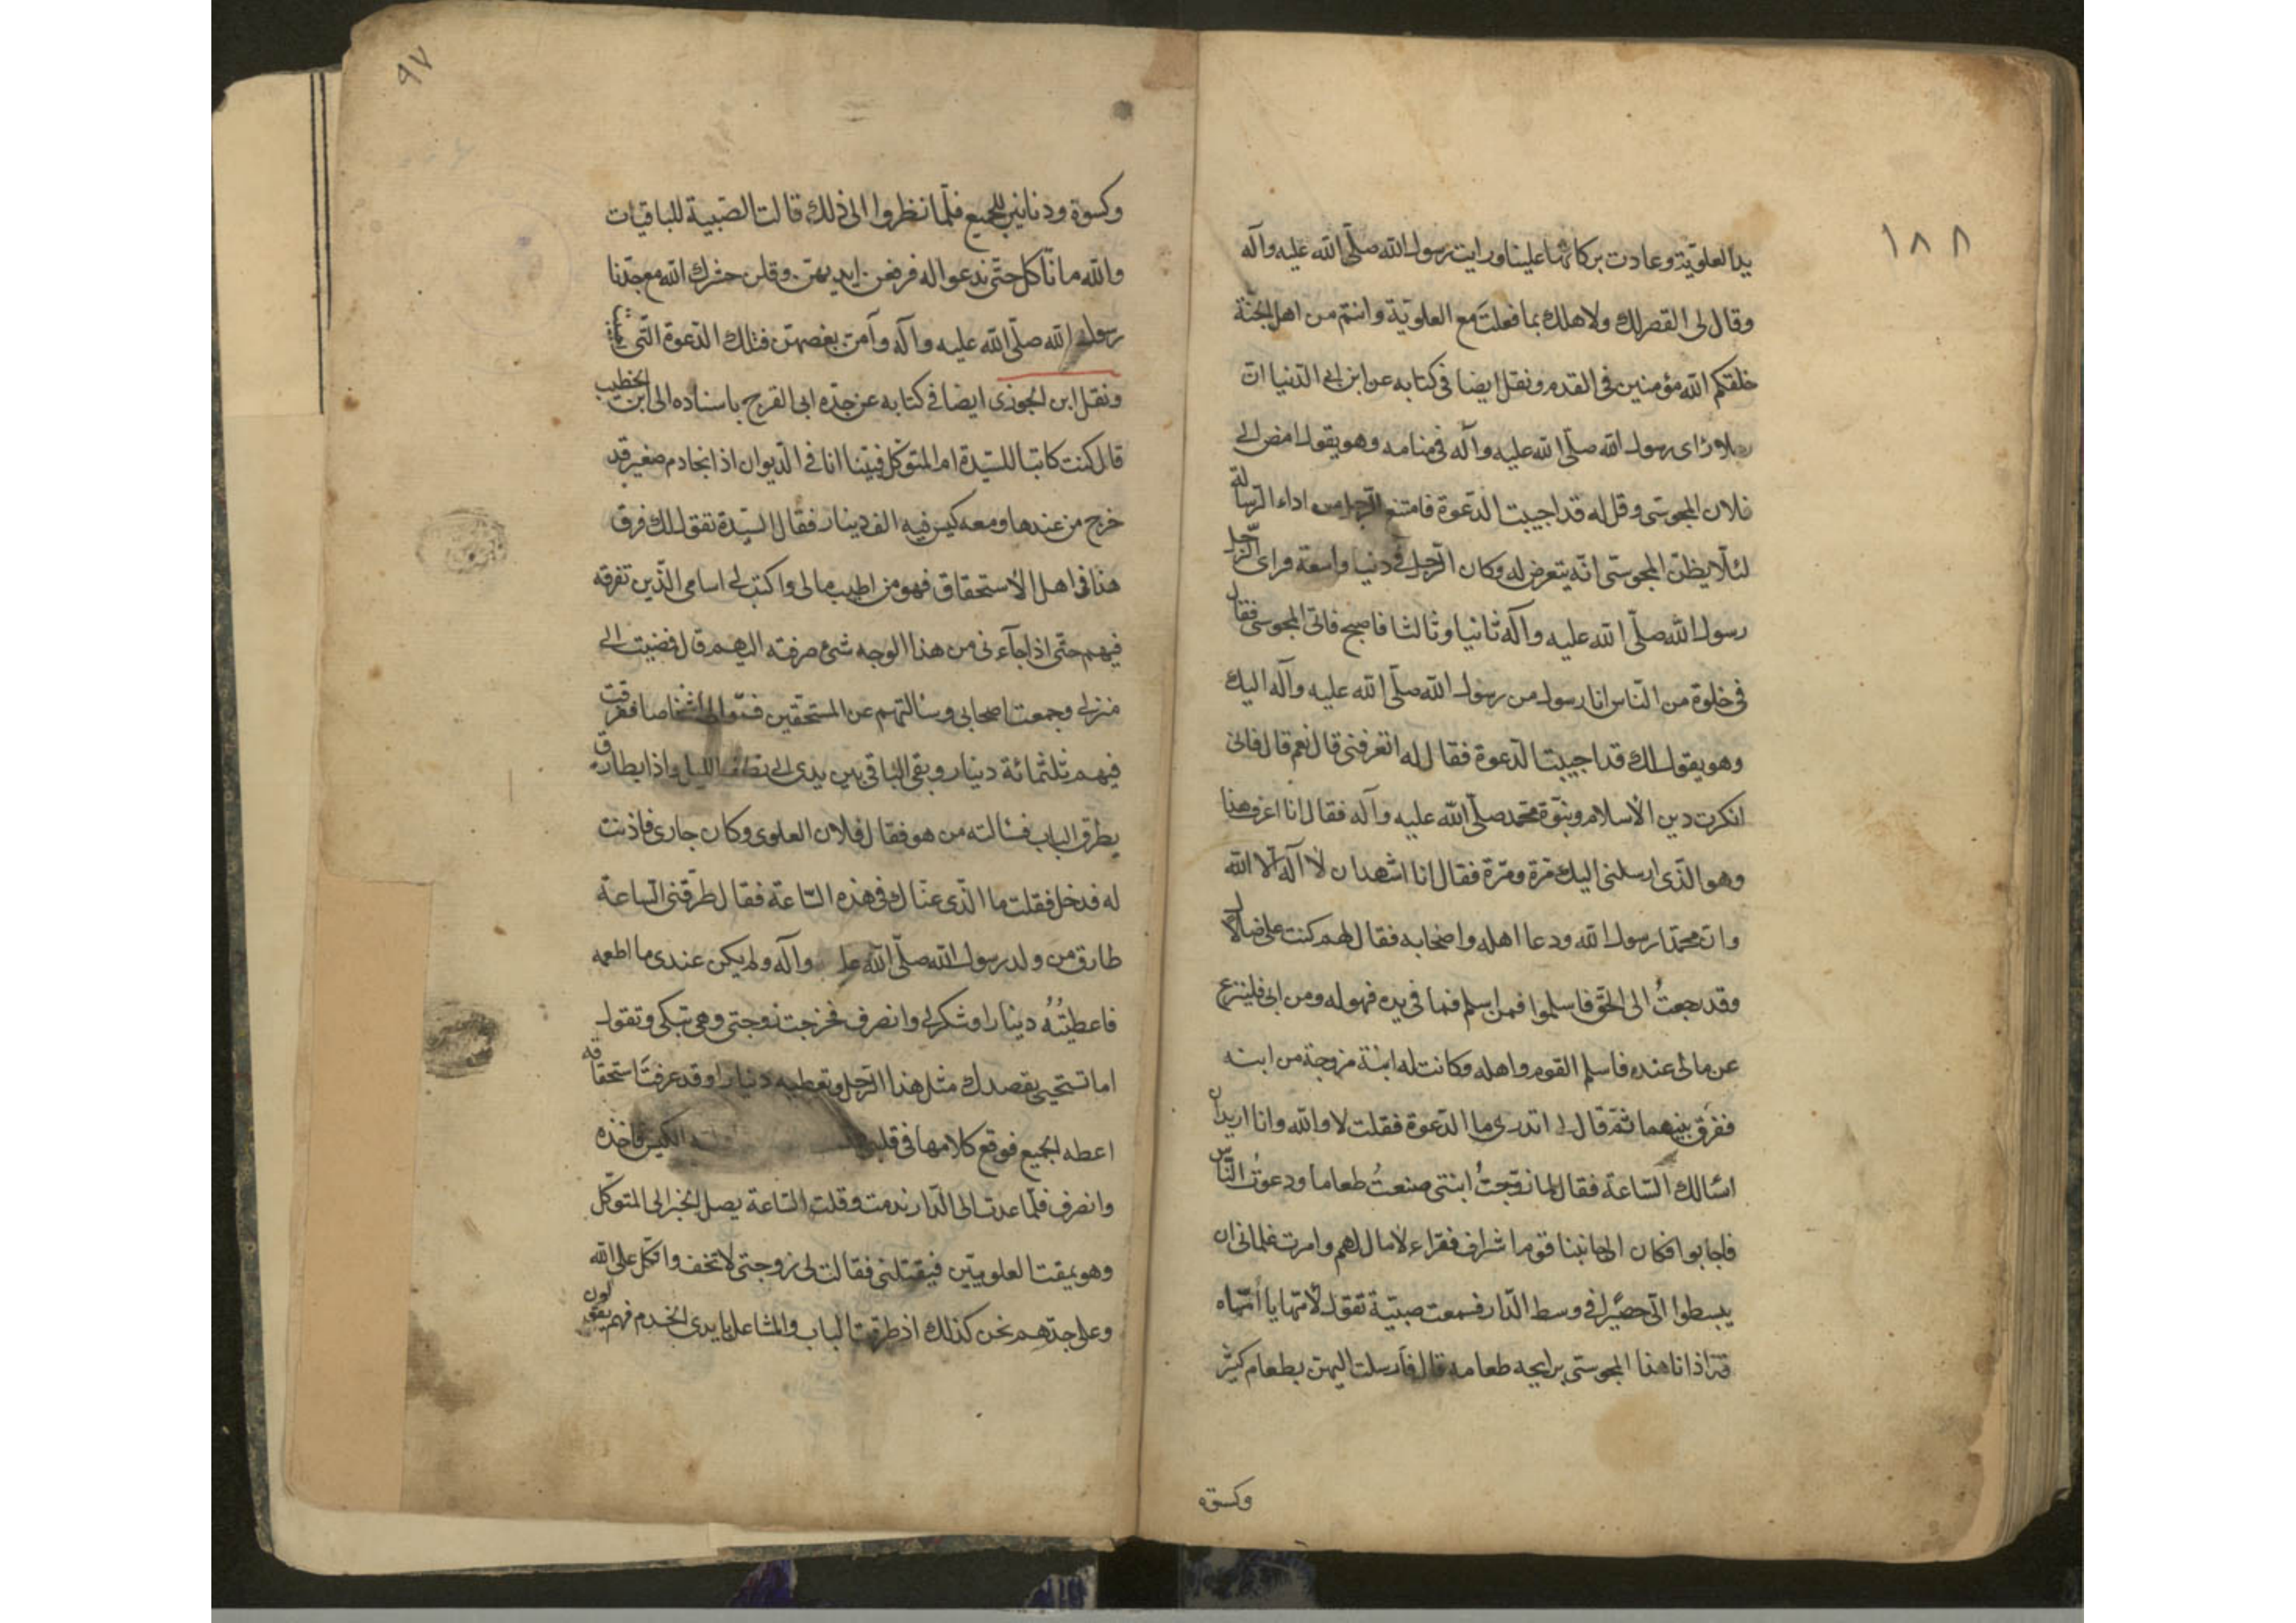 ١٨٨
يد العلوية وعادت بركاتها علينا ورايت رسول الله صلّى الله عليه وآله
وقال لى القصر لك ولاهلك بما فعلت مع العلوية وانتم من اهل الجنّة
خلقكم الله مؤمنين فى القدم ونقل ايضا فى كتابه عن ابن ابى الدنيا انّ
رجلا رأى رسول الله صلّى الله عليه وآله فى منامه وهو يقول امض الى
فلان المجوسى وقل له قد اجيبت الدّعوة فامتنع الرجل من اداء الرّسالة
لئلّا يظنّ المجوسى انّه يتعرض له وكان الرّجل فى دنيا واسعة فراى الرّجل
رسول الله صلّى الله عليه وآله ثانيا وثالثا فاصبح فاتى المجوسى فقال
فى خلوة من النّاس انا رسول من رسول الله صلّى الله عليه وآله اليك
وهو يقول لك قد اجيبت الدّعوة فقال له اتعرفنى قال نعم قال فانى
انكرت دين الاسلام ونبوّة محمّد صلّى الله عليه وآله فقال انا اعرف هذا
وهو الّذى ارسلنى اليك مرّة ومرّة فقال انا اشهد ان لا آله الّا الله
وانّ محمّدا رسول الله ودعا اهله واصحابه فقال لهم كنت على ضلال
وقد رجعتُ الى الحقّ فاسلموا فمن اسلم فما فى يده فهو له ومن ابى فلينزع
عن مالى عنده فاسلم القوم واهله وكانت له ابنة مزوجة من ابنه
ففرّق بينهما ثمّ قال لى اتدرى ما الدّعوة فقلت لا والله وانا اريد ان
اسالك السّاعة فقال لما زوّجتُ ابنتى صنعتُ طعاما ودعوتُ النّاس
فاجابوا فكان الى جانبنا قوم اشراف فقراء لا مال لهم وامرت غلمانى ان
يبسطوا لى حصيرا فى وسط الدّار فسمعت صبيّة تقول لامّها يا امّاه
قد اذانا هذا المجوسى برايحه طعامه قال فارسلت اليهن بطعام كثير
وكسوة
٩٧
وكسوة ودنانير للجميع فلمّا نظروا الى ذلك قالت الصّبية للباقيات
والله ما نأكل حتّى ندعوا له فرفعن ايديهنّ وقلن حشرك الله مع جدّنا
رسول الله صلّى الله عليه وآله وآمن بعضهنّ فتلك الدّعوة الّتى
ونقل ابن الجوزى ايضا فى كتابه عن جدّه ابى الفرج باسناده الى ابن الخطيب
قال كنت كاتبا للسّيّدة ام المتوكّل فبينا انا فى الدّيوان اذا بخادم صغير قد
خرج من عندها ومعه كيس فيه الف دينار فقال السّيّدة تقول لك فرق
هذا فى اهل الاستحقاق فهو من اطيب مالى واكتب لى اسامى الّذين تفرقه
فيهم حتّى اذا جآءنى من هذا الوجه شئ صرفته اليهم قال فمضيت الى
منزلى وجمعت اصحابى وسألتهم عن المستحقين فسّموا لى اشخاصا ففرقت
فيهم ثلثمائة دينار وبقى الباقى بين يدى الى نصف الليل واذا بطارق
يطرق الباب فسالته من هو فقال فلان العلوى وكان جارى فاذنت
له فدخل فقلت ما الّذى عنّاك فى هذه السّاعة فقال طرقنى السّاعة
طارق من ولد رسول الله صلّى الله عليه وآله ولم يكن عندى ما اطعمه
فاعطيتُهُ دينارا وشكر لى وانصرف فخرجت زوجتى وهى تبكى وتقول
اما تستحيى يقصدك مثل هذا الرّجل وتعطيه دينارا وقد عرفتَ استحقاقه
اعطه الجميع فوقع كلامها فى قلبى الكيس فاخذه
وانصرف فلمّا عدت الى الدّار ندمت وقلت السّاعة يصل الخبر الى المتوكّل
وهو يمقت العلويين فيقتلنى فقالت لى زوجتى لا تخف واتّكل على الله
وعلى جدّهم نحن كذلك اذ طرقت الباب والمشاعل بايدى الخدم فهم يقولون